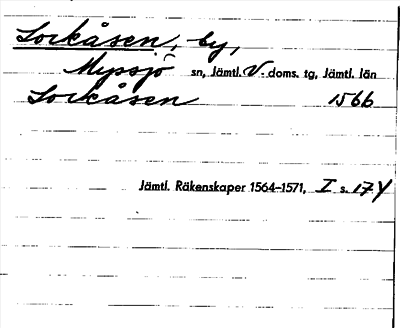 Lorkåsen, by,
Myssjö sn, Jämtl. V. doms. tg, Jämtl. län
Lorkåsen 1566
Jämtl. Räkenskaper 1564-1571, I s. 174